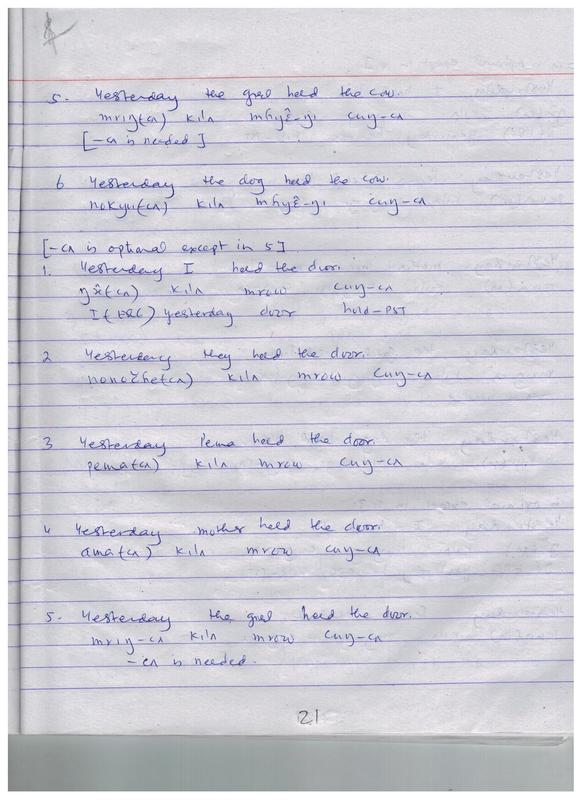 5. Yesterday the girl held the cow.
mriŋ(cʌ) kilʌ mhyɛ̂-yi cuŋ-cʌ
[-cʌ is needed]
6 Yesterday the dog held the cow.
nokyu(cʌ) kilʌ mhyɛ̂-yi cuŋ-cʌ
[-cʌ is optional except in 5]
1. Yesterday I held the door.
ŋʌ̂(cʌ) kilʌ mrʌw cuŋ-cʌ
I(ERG) yesterday door hold-PST
2 Yesterday they held the door.
kilʌ mrʌw cuŋ-cʌ
3 Yesterday Pema held the door.
pema(cʌ) kilʌ mrʌw cuŋ-cʌ
4 Yesterday mother held the door.
ama(cʌ) kilʌ mrʌw cuŋ-cʌ
5. Yesterday the girl held the door.
mriŋ-cʌ kilʌ mrʌw cuŋ-cʌ
-cʌ is needed.
21